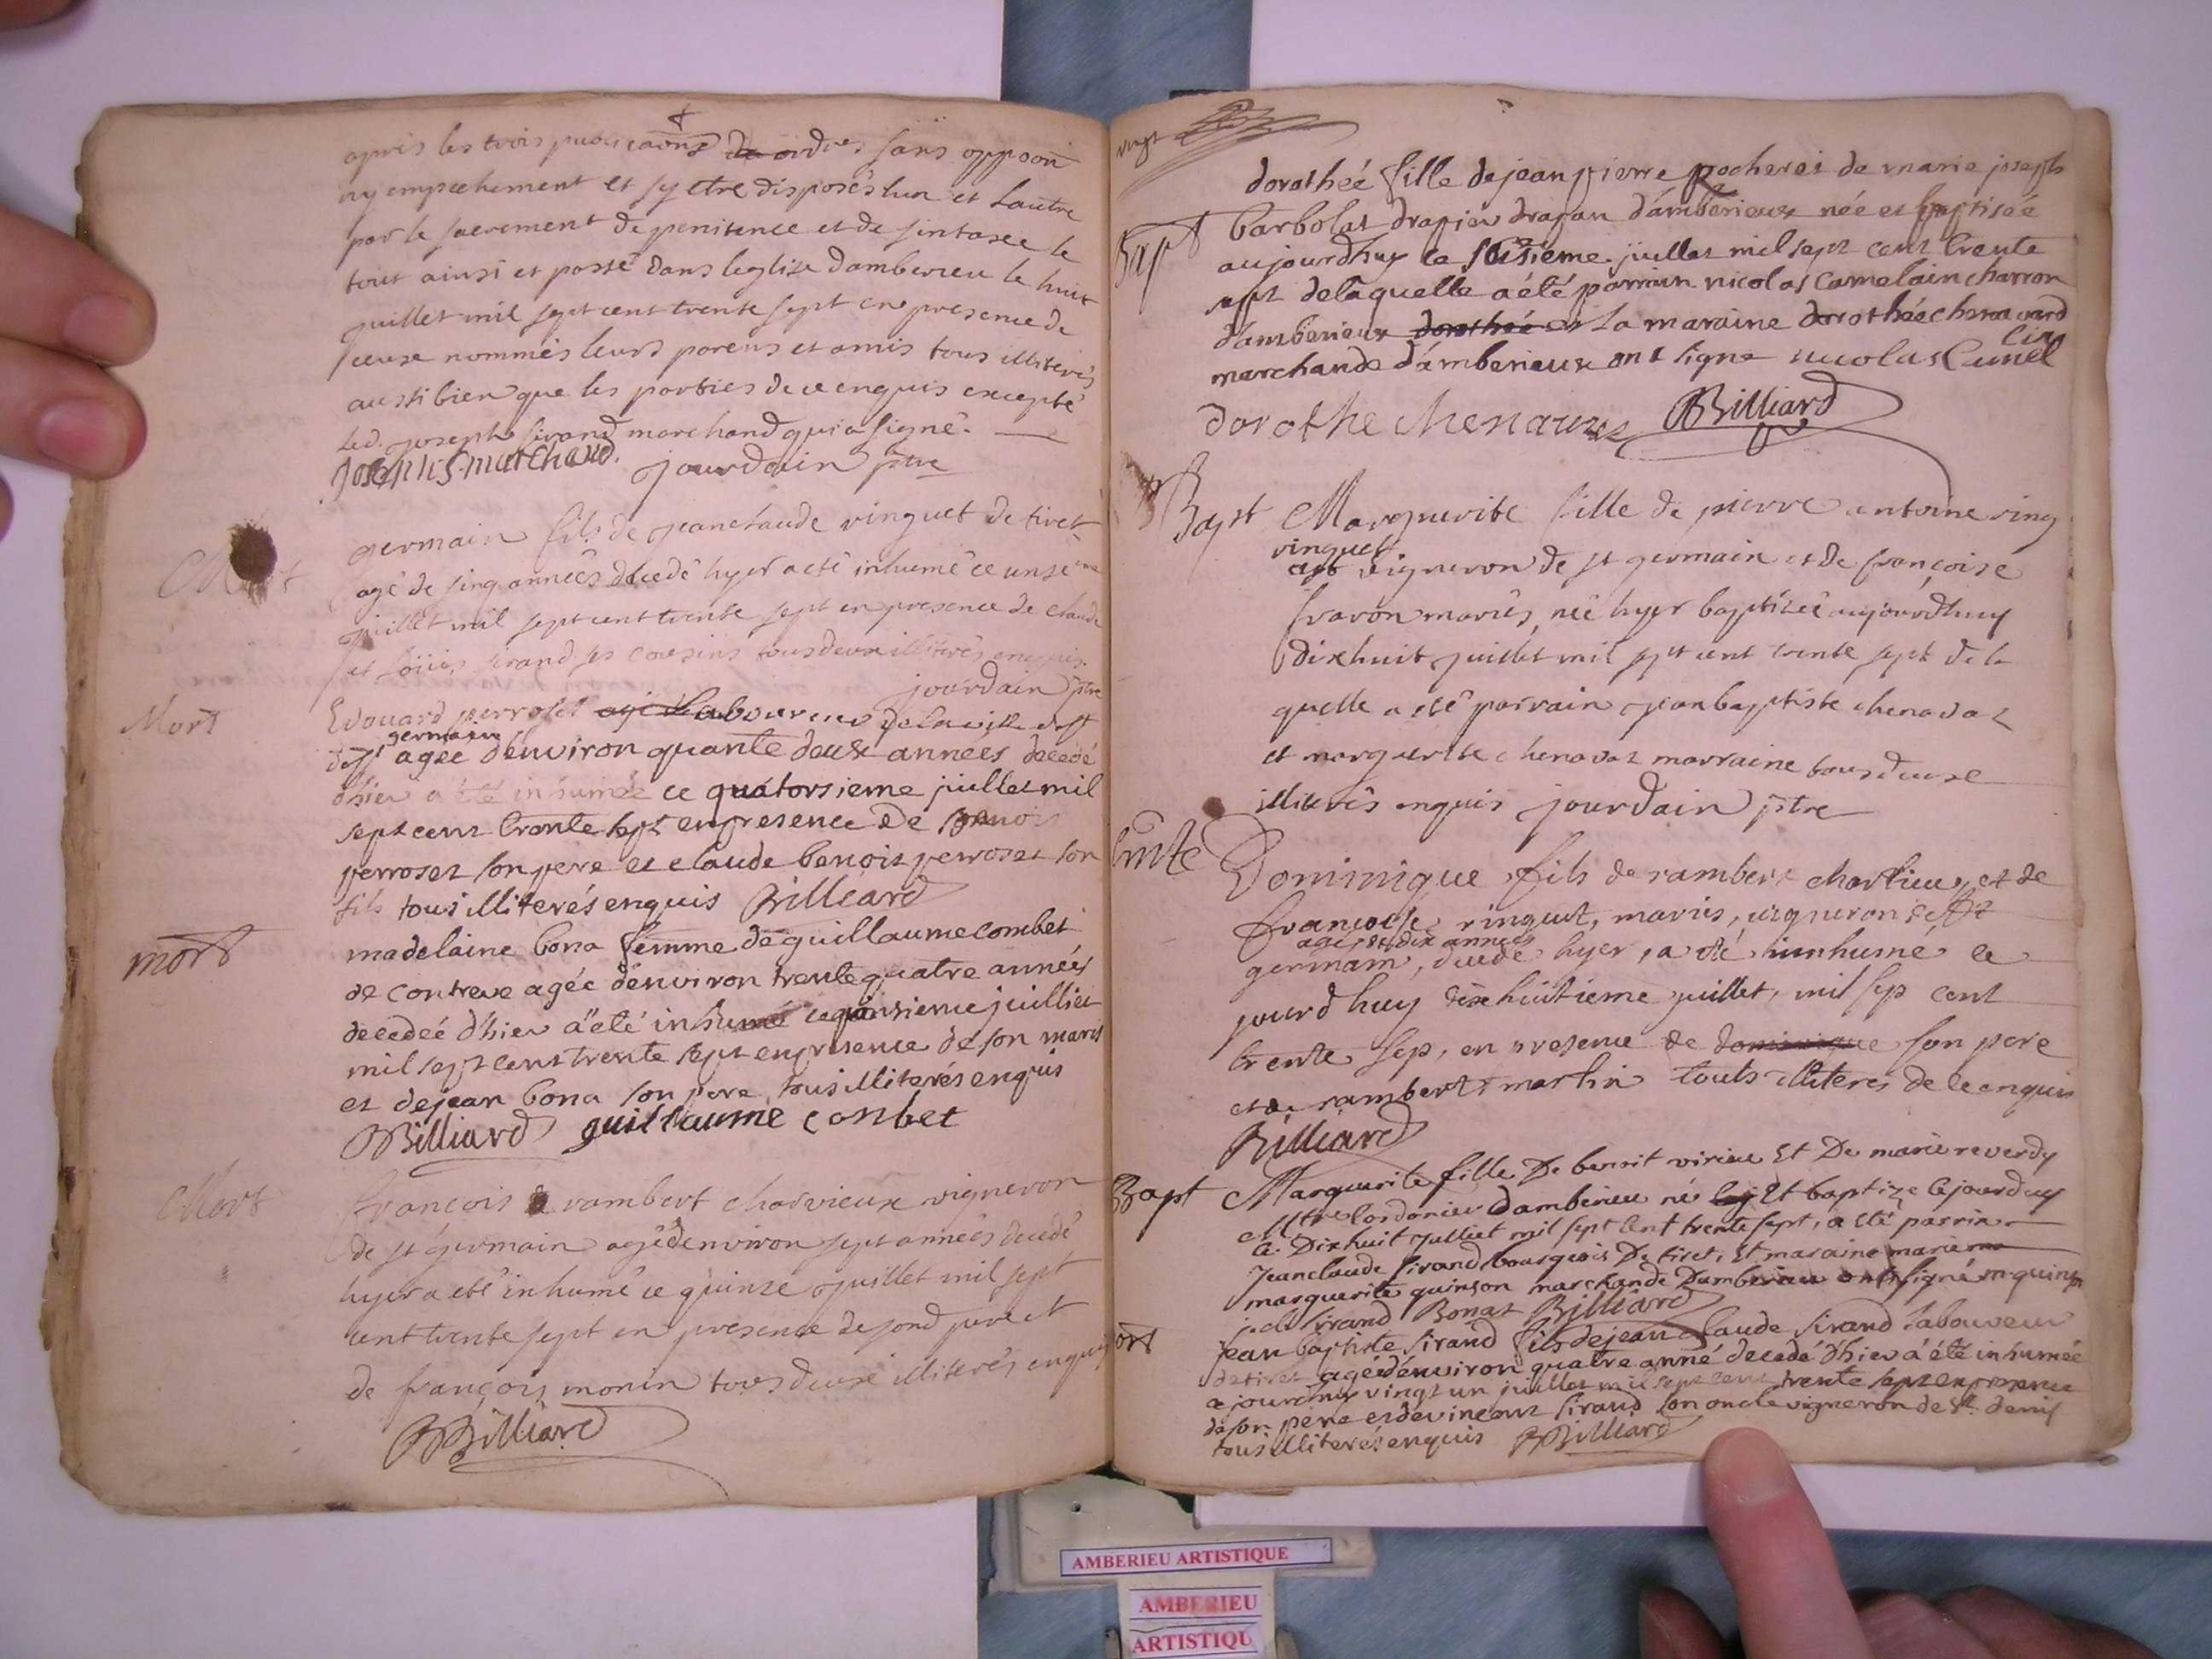 apres les trois publicaons de ordres sans opposon
ny empechement et sy etre disposés lun et lautre
par le sacrement de penitence et de
tout ainsi et passé dans leglise damberieu le huit
juillet mil sept cent trente sept en presence de
ceux nommés leurs parens et amis tous illiterés
aussi bien que les parties de ce enquis excepté
led. joseph sirand marchand qui a signé.
marchand. jourdain ptre
Mort
germain fils de jeanclaude vinguet de tiret
agé de sinq années décedé hyer a eté inhumé ce unze
juillet mil sept cent trente sept en presence de claude
et loüis sirand ses cousins tous deux illiterés enquis.
jourdain ptre
Mort
Edouard perroset laboureur de la ville de st
germain
agée d'environ quante deux années decedé
d'hier a été inhumée ce quatorsieme juillet mil
sept cent trente sept en presence de
perroset son pere et claude benoit perroset son
fils tous illiterés enquis Billiard
mort
madelaine bona femme de guillaume combet
de contreve agée d'environ trente quatre années
decedeé d'hier a été inhumé ce quinsieme juilliet
mil sept cent trente sept en presence de son maris
et de jean bona son pere, tous illiterés enquis
Billiard guillaume conbet
Mort
françois rambert charvieux vigneron
de st germain agé denviron sept années decedé
hyer a eté inhumé ce quinze juillet mil sept
cent trente sept en presence de sond pere et
de françois monin tous deux illiterés enquis
Billiard
vingt
Bapt
dorothéé fille de jean pierre pocheret de marie joseph
barbolat drapier drapan d'amberieux née et baptisée
aujourdhuy le juillet mil sept cent trente
sept de laquelle a été parrain nicolas camelain charron
d'amberieux dorothéé et la maraine dorothée
marchande d'amberieux ont signe nicolas
dorothe chenauat Billiard
Bapt
Marguerite fille de pierre antoine ving
vinguet
vigneron de st germain et de françoise
fravon mariés, neé hyer baptizeé aujourdhuy
dixhuit juillet mil sept cent trente sept de la
quelle a eté parrain jean baptiste chenavaz
et marguerite chenavaz marraine tous deux
illiterés enquis jourdain ptre
Dominique fils de rambert charvieux et de
françoise vinguet, mariés, vigneron de st
agé de dix années
germain, decedé hyer, a été inhumé ce
jourd huy dixhuitieme juillet, mil sep cent
trente sep, en presence de dominique son pere
et de rambert martin touts illiteres de ce enquis
Billiard
Bapt
Marguerite fille De benoit virieu Et De marie reverdy
Mtre Cordonier damberieu né Et baptize ce jourduy
Ce Dixhuit julliet mil sept cent trente sept, a eté parrin
Jeanclaude sirand bourgeois De tiret, Et maraine marie
marguerite quinson marchande Damberieu ont signé m quinson
j cl sirand Bonat Billiard
ort
jean baptiste sirand fils de jean claude sirand laboureur
de tiret agé d'environ quatre anné decedé d'hier a été inhumée
a jourdhuy vingt un juillet mil sept cent trente sept en presence
de son pere et de vincent sirand son oncle vigneron de st denis
tous illiterés enquis Billiard
AMBERIEU ARTISTIQUE
AMBERIEU
ARTISTIQU